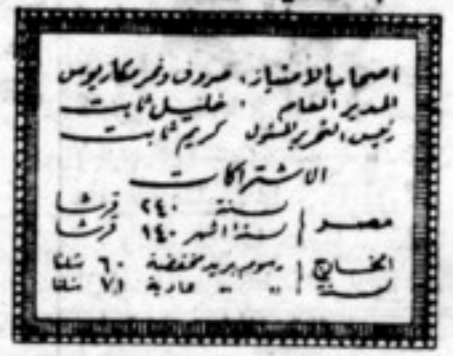 اصحاب الامتياز: صروف ونمر مكاريوس
المدير العام : خليل ثابت
رئيس التحرير المسئول كريم ثابت
الاشتراكات
مصر | سنة ٢٤٠ قرشا
ستة اشهر ١٤٠ قرشا
الخارج | رسوم بريد مخفضة ٦٠ شلنا
سنة | " " عادية ٧٦ شلنا